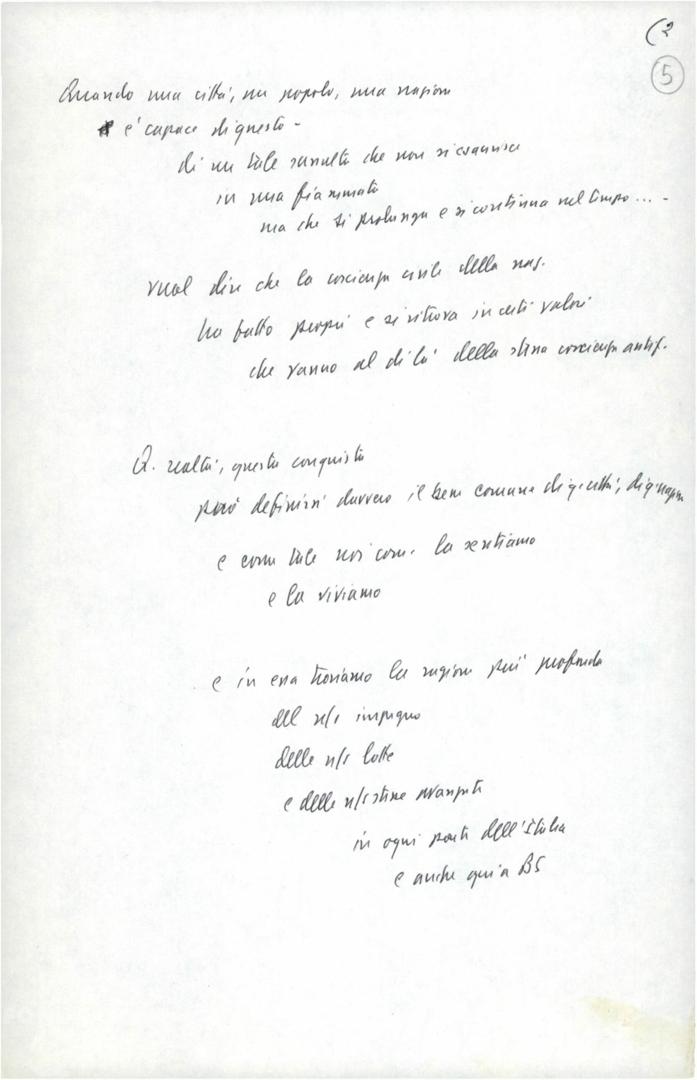 (2
5
Quando una città, un popolo, una nazione
è capace di questo -
di un tale sussulto che non si esaurisce
in una fiammata
ma che si prolunga e si continua nel tempo... -
vuol dire che la coscienza civile della naz.
ha fatto propri e si ritrova in certi valori
che vanno al di là della stessa coscienza antif.
Q. realtà, questa conquista
può definirsi davvero il bene comune di q. città, di q. nazione
e come tale noi com. la sentiamo
e la viviamo
e in essa troviamo la ragione più profonda
del n/s impegno
delle n/s lotte
e delle n/s stesse avanzate
in ogni parte dell'Italia
e anche qui a BS